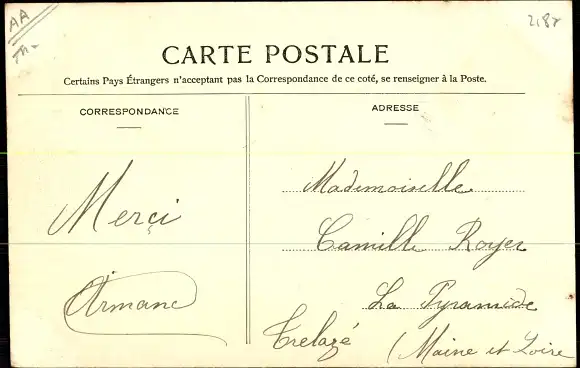 AA
2,87
CARTE POSTALE
Certains Pays Étrangers n'acceptant pas la Correspondance de ce coté, se renseigner à la Poste.
CORRESPONDANCE
Merçi
Armand
ADRESSE
Mademoiselle
Camille Royer
La Pyramide
Trelazé
(Maine et Loire